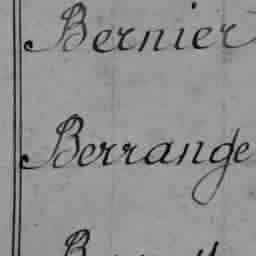 Bernier
Berrange